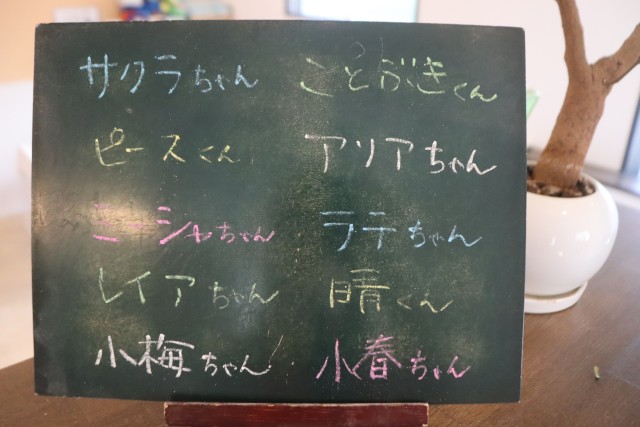 サクラちゃん
ことぶきくん
ピースくん
アリアちゃん
ミーシャちゃん
ラテちゃん
レイアちゃん
晴くん
小梅ちゃん
小春ちゃん